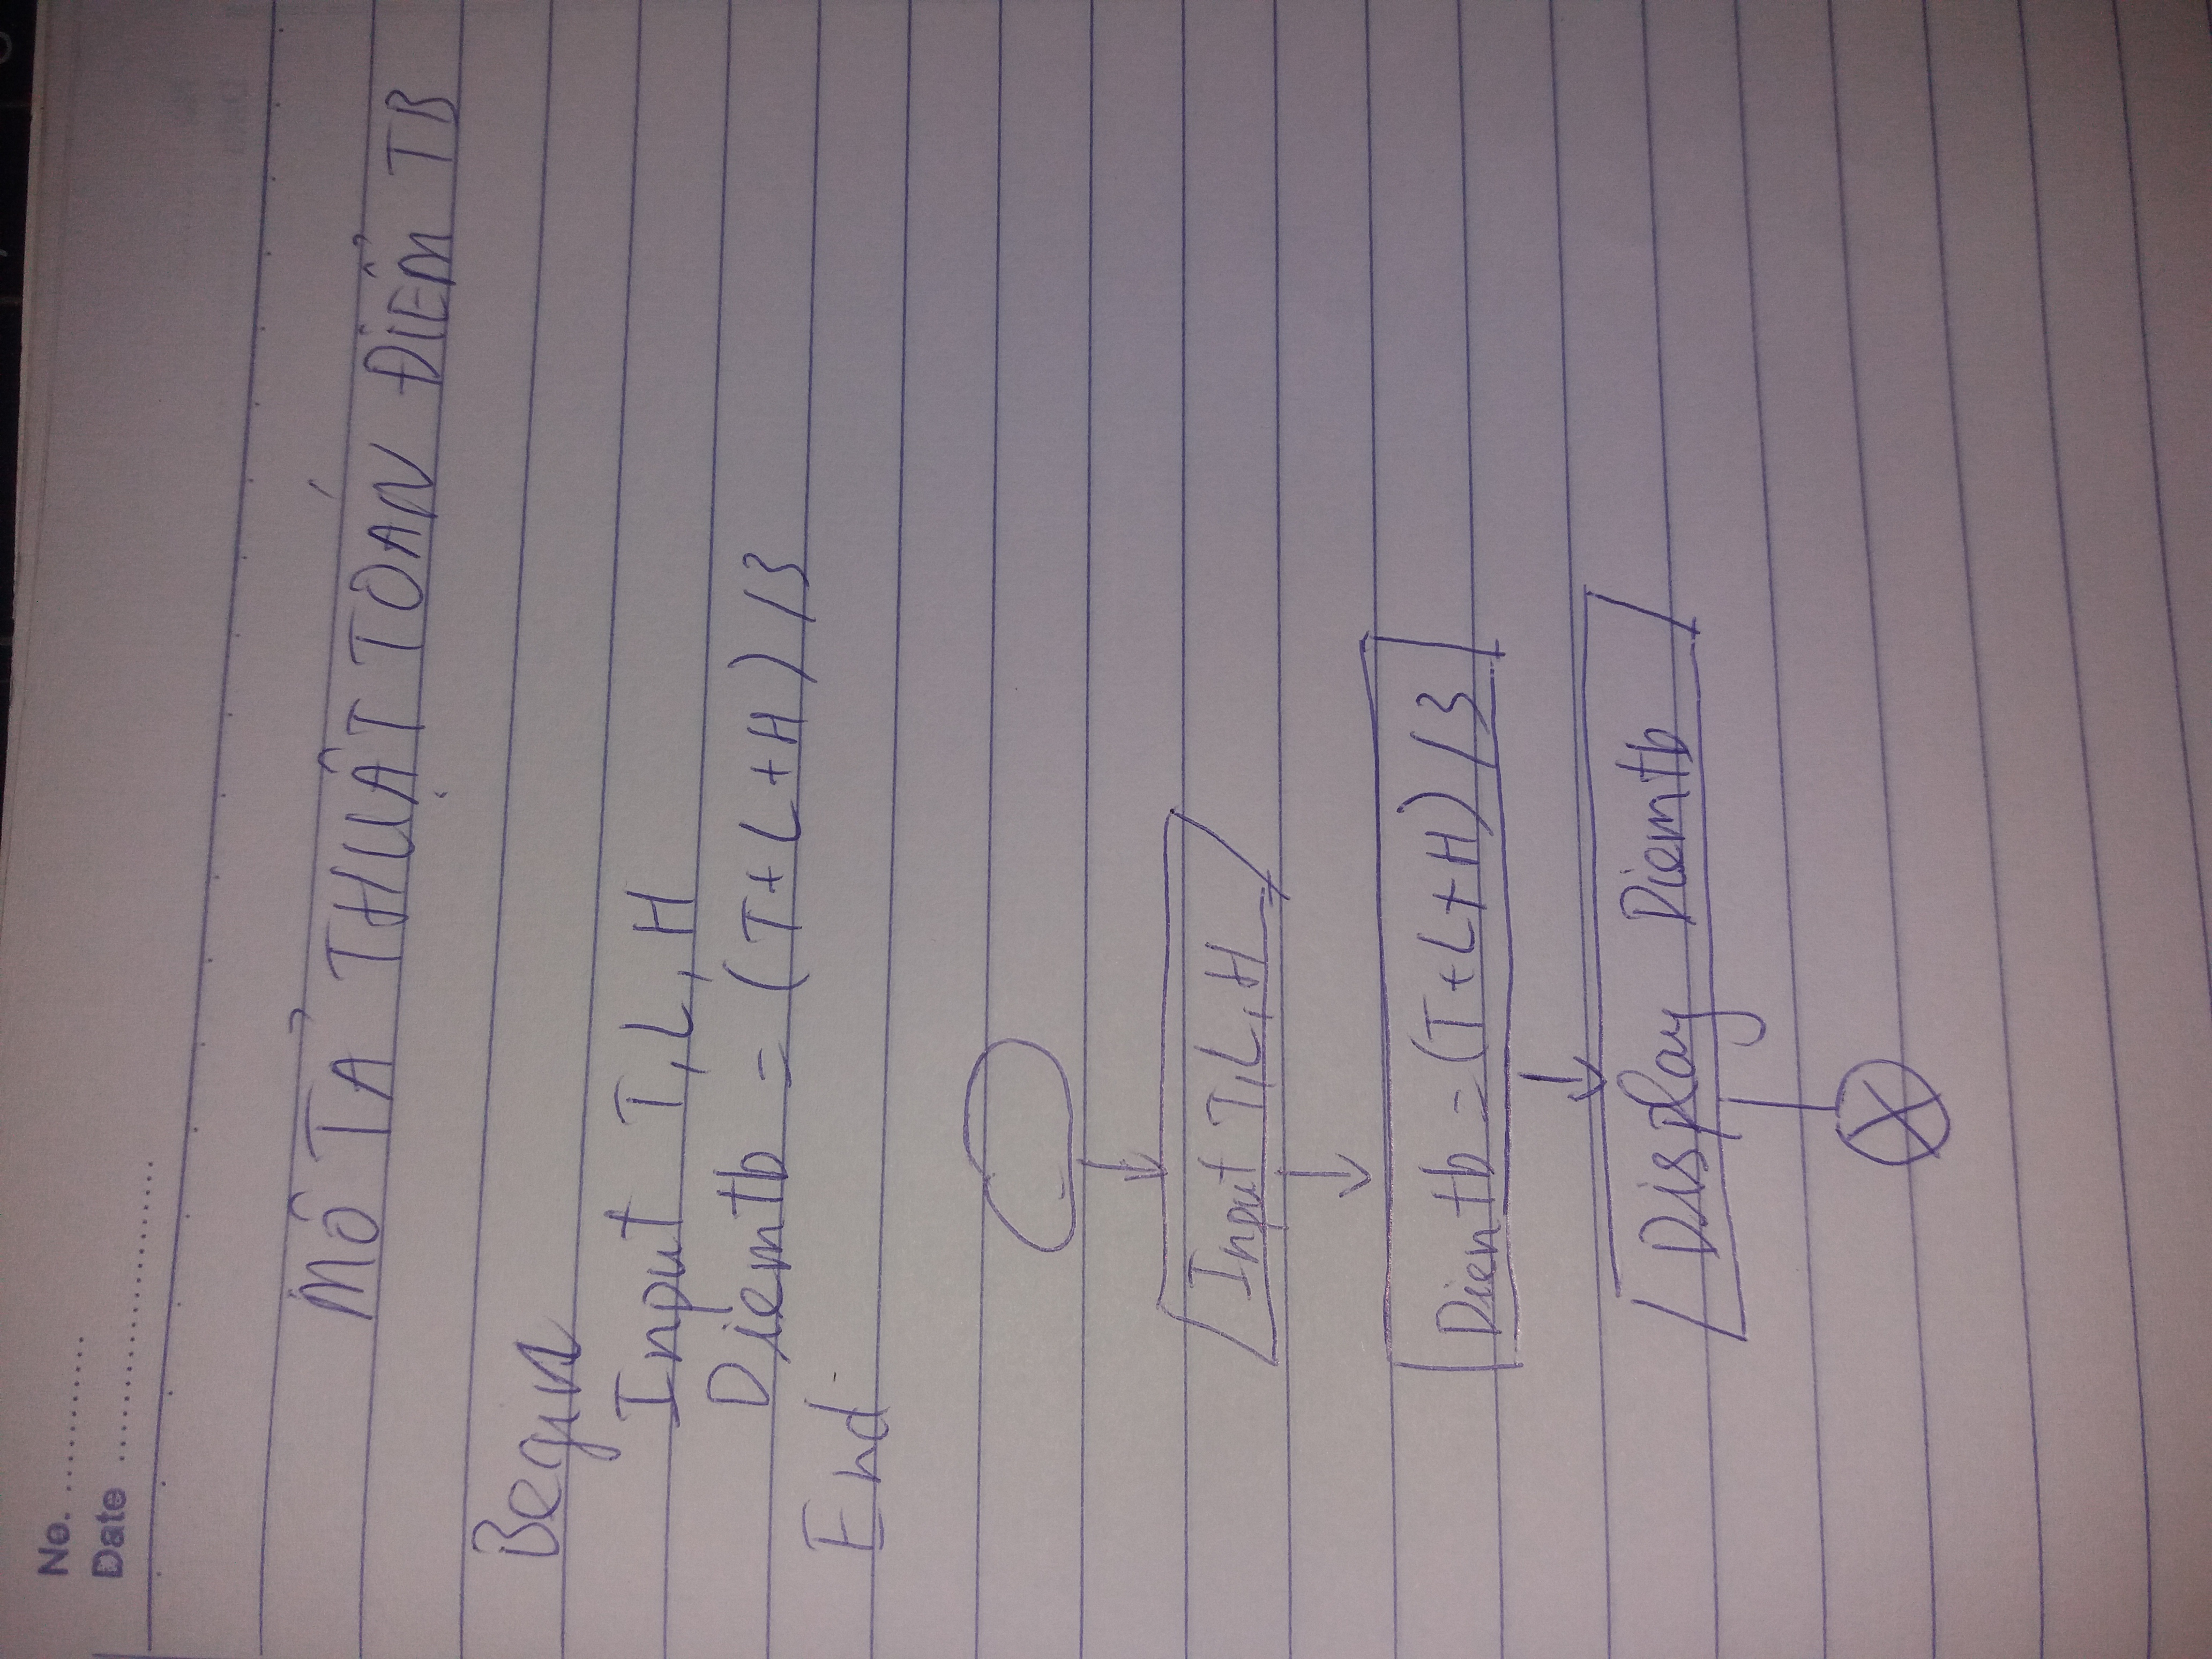 No. ...........
Date ....................
MÔ TẢ THUẬT TOÁN ĐIỂM TB
Begin
Input T, L, H
Diemtb = (T+L+H) /3
End
Input T, L, H
Dientb = (T+L+H) /3
Display Diemtb